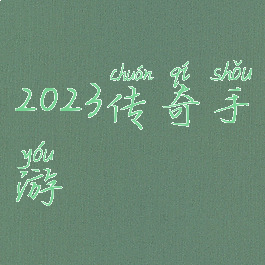 chuán qí shǒu
2023传奇手
yóu
游